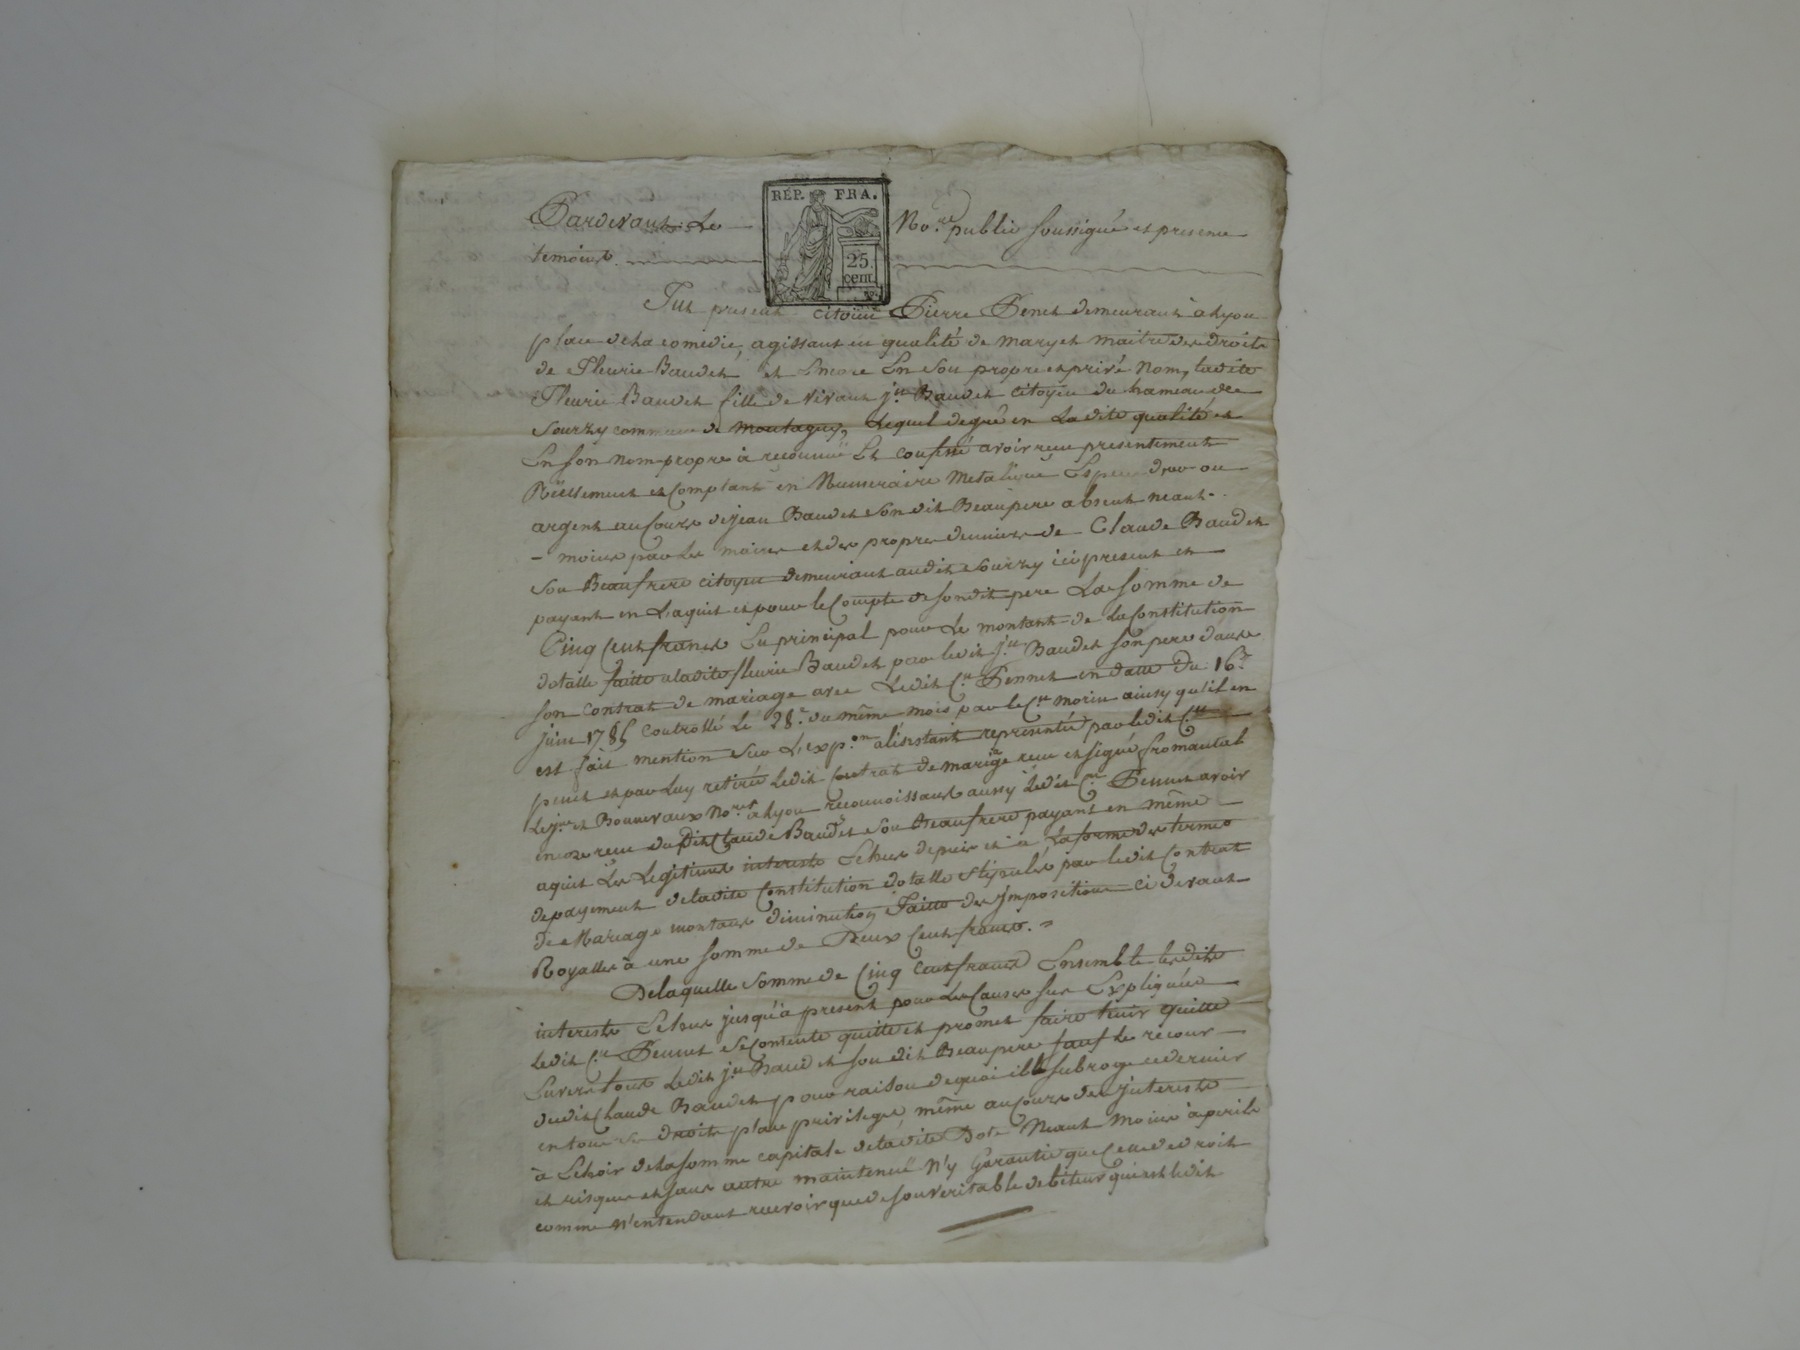 Pardevant Le No.re public soussigné et presence
temoins.
REP. FRA.
25.
cem.
Fut present citoïen Pierre Penet demeurant a Lyon
place de la comedie, agissant en qualité de mary et maitre des droits
de Fleurie Baudet et Encore En son propre et privé Nom, ladite
Fleurie Baudet fille de vivant j.n Baudet citoyen du hameau de
Sourzy commune de montagny, Lequel de gré en La dite qualité et
En son nom propre à reconnu Et confessé avoir reçu presentement
Réellement et Comptant en Numeraire Metalique Espece d'or ou
argent au Cours de jean Baudet son dit Beaupere absent neant-
- moins par les mains et des propres denniers de Claude Baudet
son Beaufrere citoyen demeurant audit Sourzy ici present et
payant en L'aquit et pour le Compte de sondit pere La somme de
Cinq Cent francs En principal pour Le montant de La Constitution
dotalle faitte a ladite fleurie Baudet par ledit j.n Baudet son pere dans
son contrat de mariage avec Ledit C.n Pennet en datte du 16.e
juin 1785 Controllé Le 28.e du même mois par le C.n morin ainsy qu'il en
est fait mention sur L'exp.on a l'instant representée par ledit C.en
penet et par Luy retirée Ledit Contrat de mariage recu et signé fromental
Le j.ne et Bonnevaux No.res a Lyon reconnoissant aussy Ledit C.en Pennet avoir
encore recu du Dit Claude Baudet son Beaufrere payant en même
aquit Les Legitimes interests Echus depuis et à La forme des termes
de payement de ladite Constitution dotalle stipulés par ledit Contrat
de Mariage montant diminution Faitte des Impositions ci devant
Royalles à une somme de Deux Cent francs.
De laquelle somme de Cinq Cent francs Ensemble lesdits
interests Echus jusqu'à present pour Les Causes sus Expliquées
Ledit C.n Pennet se Contente quitte et promet faire tenir quitte
Envers tous Ledit j.n Baudet son dit Beaupere sauf le recour
dudit Claude Baudet pour raison de quoi il subroge ce dernier
en tous ses droits place privileges, même au Cours des Interests
à Echoir de la somme capitale de ladite Dote Neant Moins à perils
et risques et sans autre maintenue N'y Garantie que Celle de droit
comme N'entendant recevoir que de son veritable debiteur qui est ledit